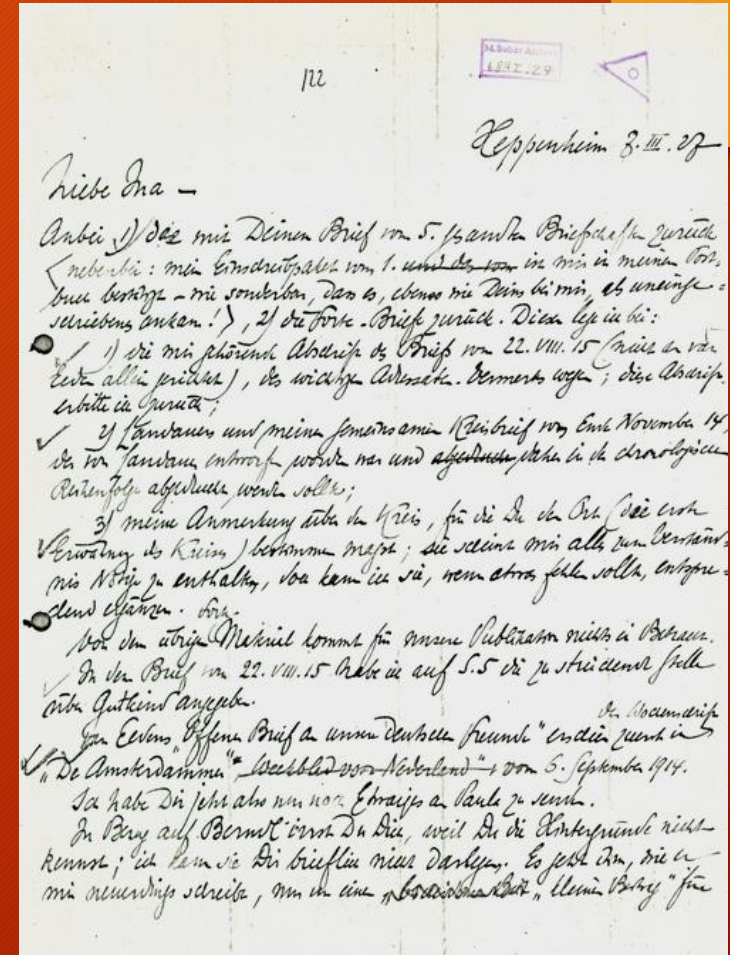 122
M. Buber Archiv
Heppenheim 8. III. 27
Liebe Ina —
Anbei 1) die mit Deinem Brief vom 5. gesandten Briefschaften zurück
<nebenbei: mein Einschreibpaket vom 1. und das vom ist mir in meinem Post-
buch bestätigt – wie sonderbar, dass es, ebenso wie Deins bei mir, als uneinge-
schrieben ankam!>, 2) die Forte-Briefe zurück. Diesen lege ich bei:
1) die mir gehörende Abschrift des Briefs vom 22. VIII. 15 (nicht an van
Eeden allein gerichtet), des wichtigen Adressaten-Vermerks wegen; diese Abschrift
erbitte ich zurück;
2) Landauers und meinen gemeinsamen Kreisbrief von Ende November 14,
der von Landauer entworfen worden war und daher in der chronologischen
Reihenfolge abgedruckt werden sollte;
3) meine Anmerkung über den Kreis, für die Du den Ort (die erste
Erwähnung des Kreises) bestimmen magst; sie scheint mir alles zum Verständ-
nis Nötige zu enthalten, doch kann ich sie, wenn etwas fehlen sollte, entspre-
chend ergänzen.
Von dem übrigen Material kommt für unsere Publikation nichts in Betracht.
In dem Brief vom 22. VIII. 15 habe ich auf S. 5 die zu streichende Stelle
über Gutkind angegeben.
der Wochenschrift
Van Eedens "Offener Brief an unsere deutschen Freunde" erschien zuerst in
"De Amsterdammer", Weekblad voor Nederland", vom 6. September 1914.
Ich habe Dir jetzt also nur noch Etwaiges an Paula zu senden.
In Bezug auf Berndl irrst Du Dich, weil Du die Hintergründe nicht
kennst; ich kann sie Dir brieflich nicht darlegen. Es geht ihm, wie er
mir neuerdings schreibt, nur um einen "kleinen Betrag" für